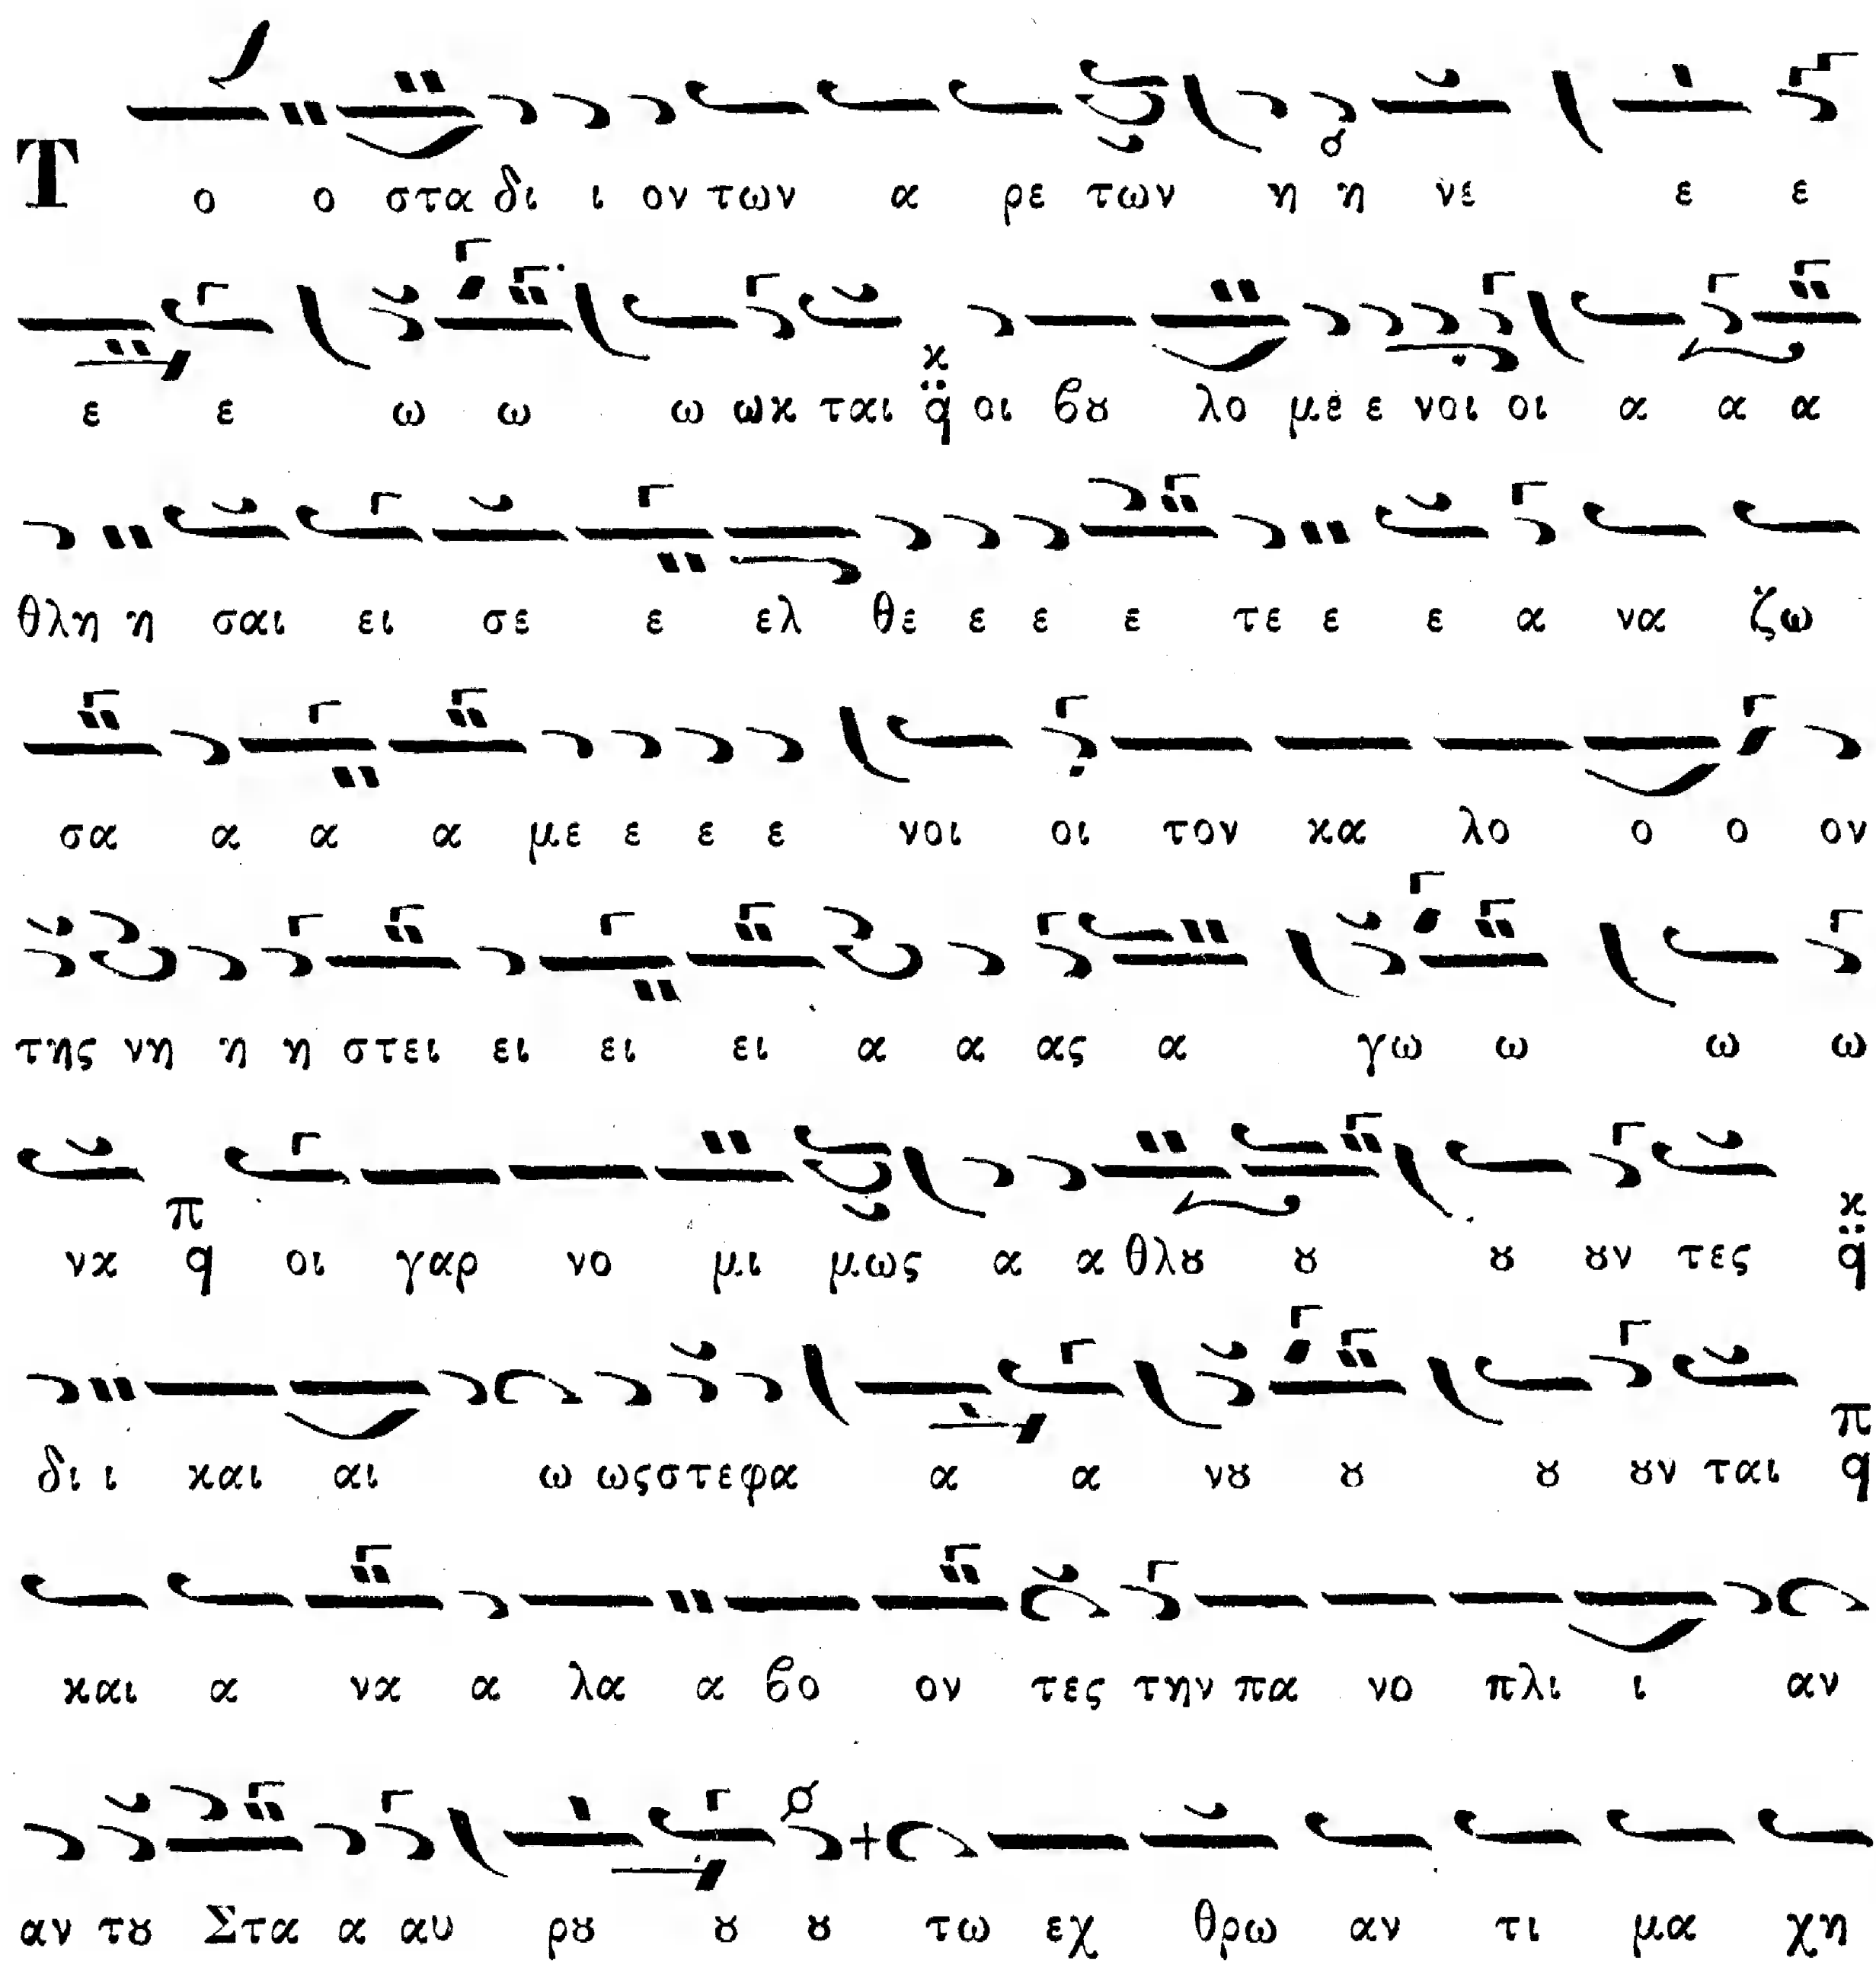 Τ ο ο στα δι ι ον των α ρε των η η νε ε ε
ε ε ω ω ω ωκ ται κ q̈ οι βȣ λο με ε νοι οι α α α
θλη η σαι ει σε ε ελ θε ε ε ε τε ε ε α να ζω
σα α α α με ε ε ε νοι οι τον κα λο ο ο ον
της νη η η στει ει ει ει α α ας α γω ω ω ω
να π q οι γαρ νο μι μως α α θλȣ ȣ ȣ ȣν τες κ q̈
δι ι και αι ω ως στεφα α α νȣ ȣ ȣ ȣν ται π q
και α να α λα α βο ον τες την πα νο πλι ι αν
αν τȣ Στα α αυ ρȣ ȣ ȣ τω εχ θρω αν τι μα χη